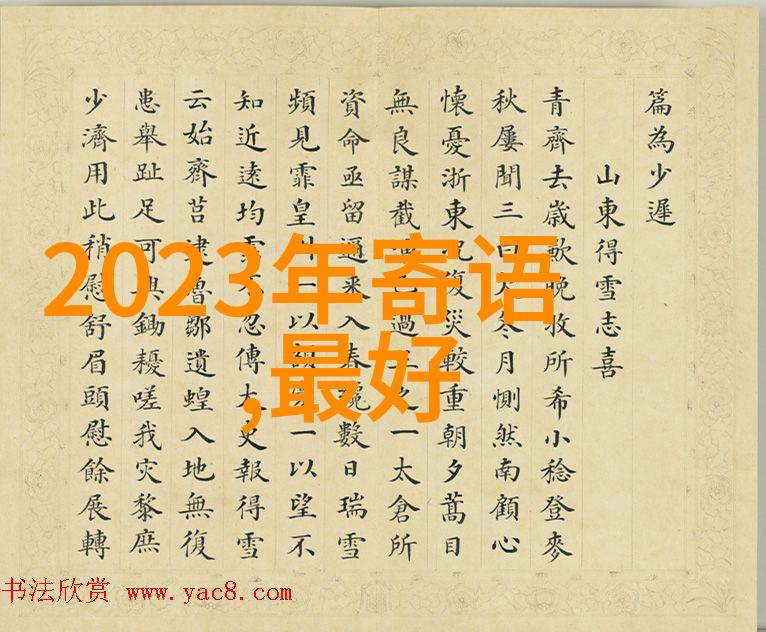 篇為少遲
山東得雪志喜
青齊去歲歉晚收所希小稔登麥
秋屢聞三冬月惻然南顧心
懷憂浙東況復災較重朝夕蒿目
無良謀截已過三之一太倉所
資命亟留通來入春數日瑞雪
頻見霏皇州一以一以望不
知近遠均忽傳大吏報得雪
云始齊莒逮魯鄒遺蝗入地無復
患舉趾足可興鋤耰嗟我灾黎庶
少濟用此稍慰舒眉頭慰餘展轉
2023年寄语
,最好
书法欣赏 www.yac8.com